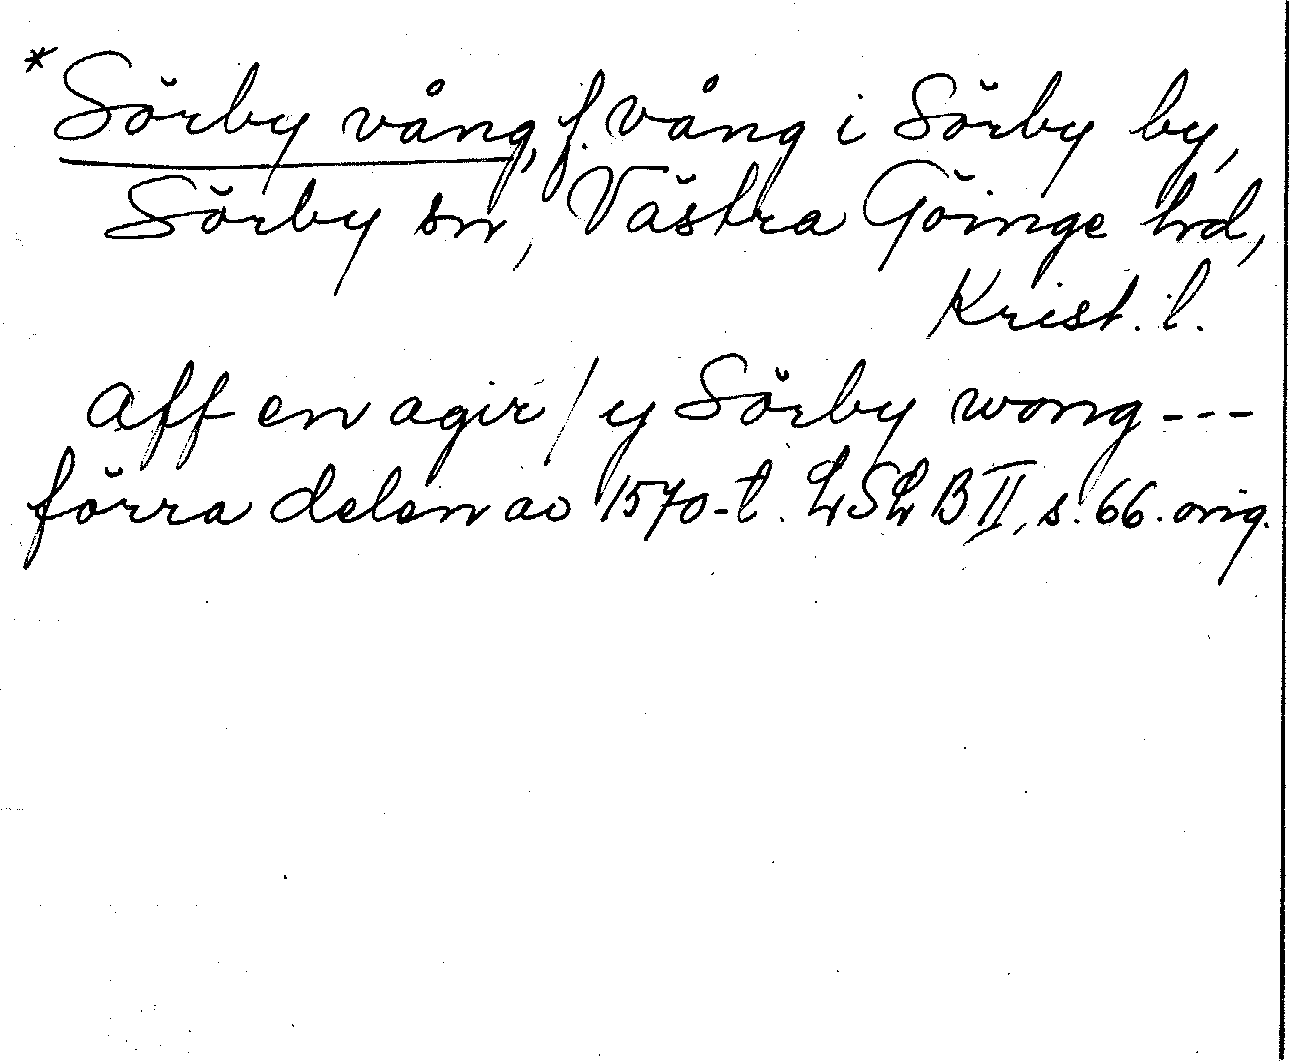 *Sörby vång, f. vång i Sörby by,
Sörby sn, Västra Göinge hrd,
Krist. l.
aff en agir / y Sörby wong ---
förra delen av 1570-t. LSLB II, s. 66. orig.